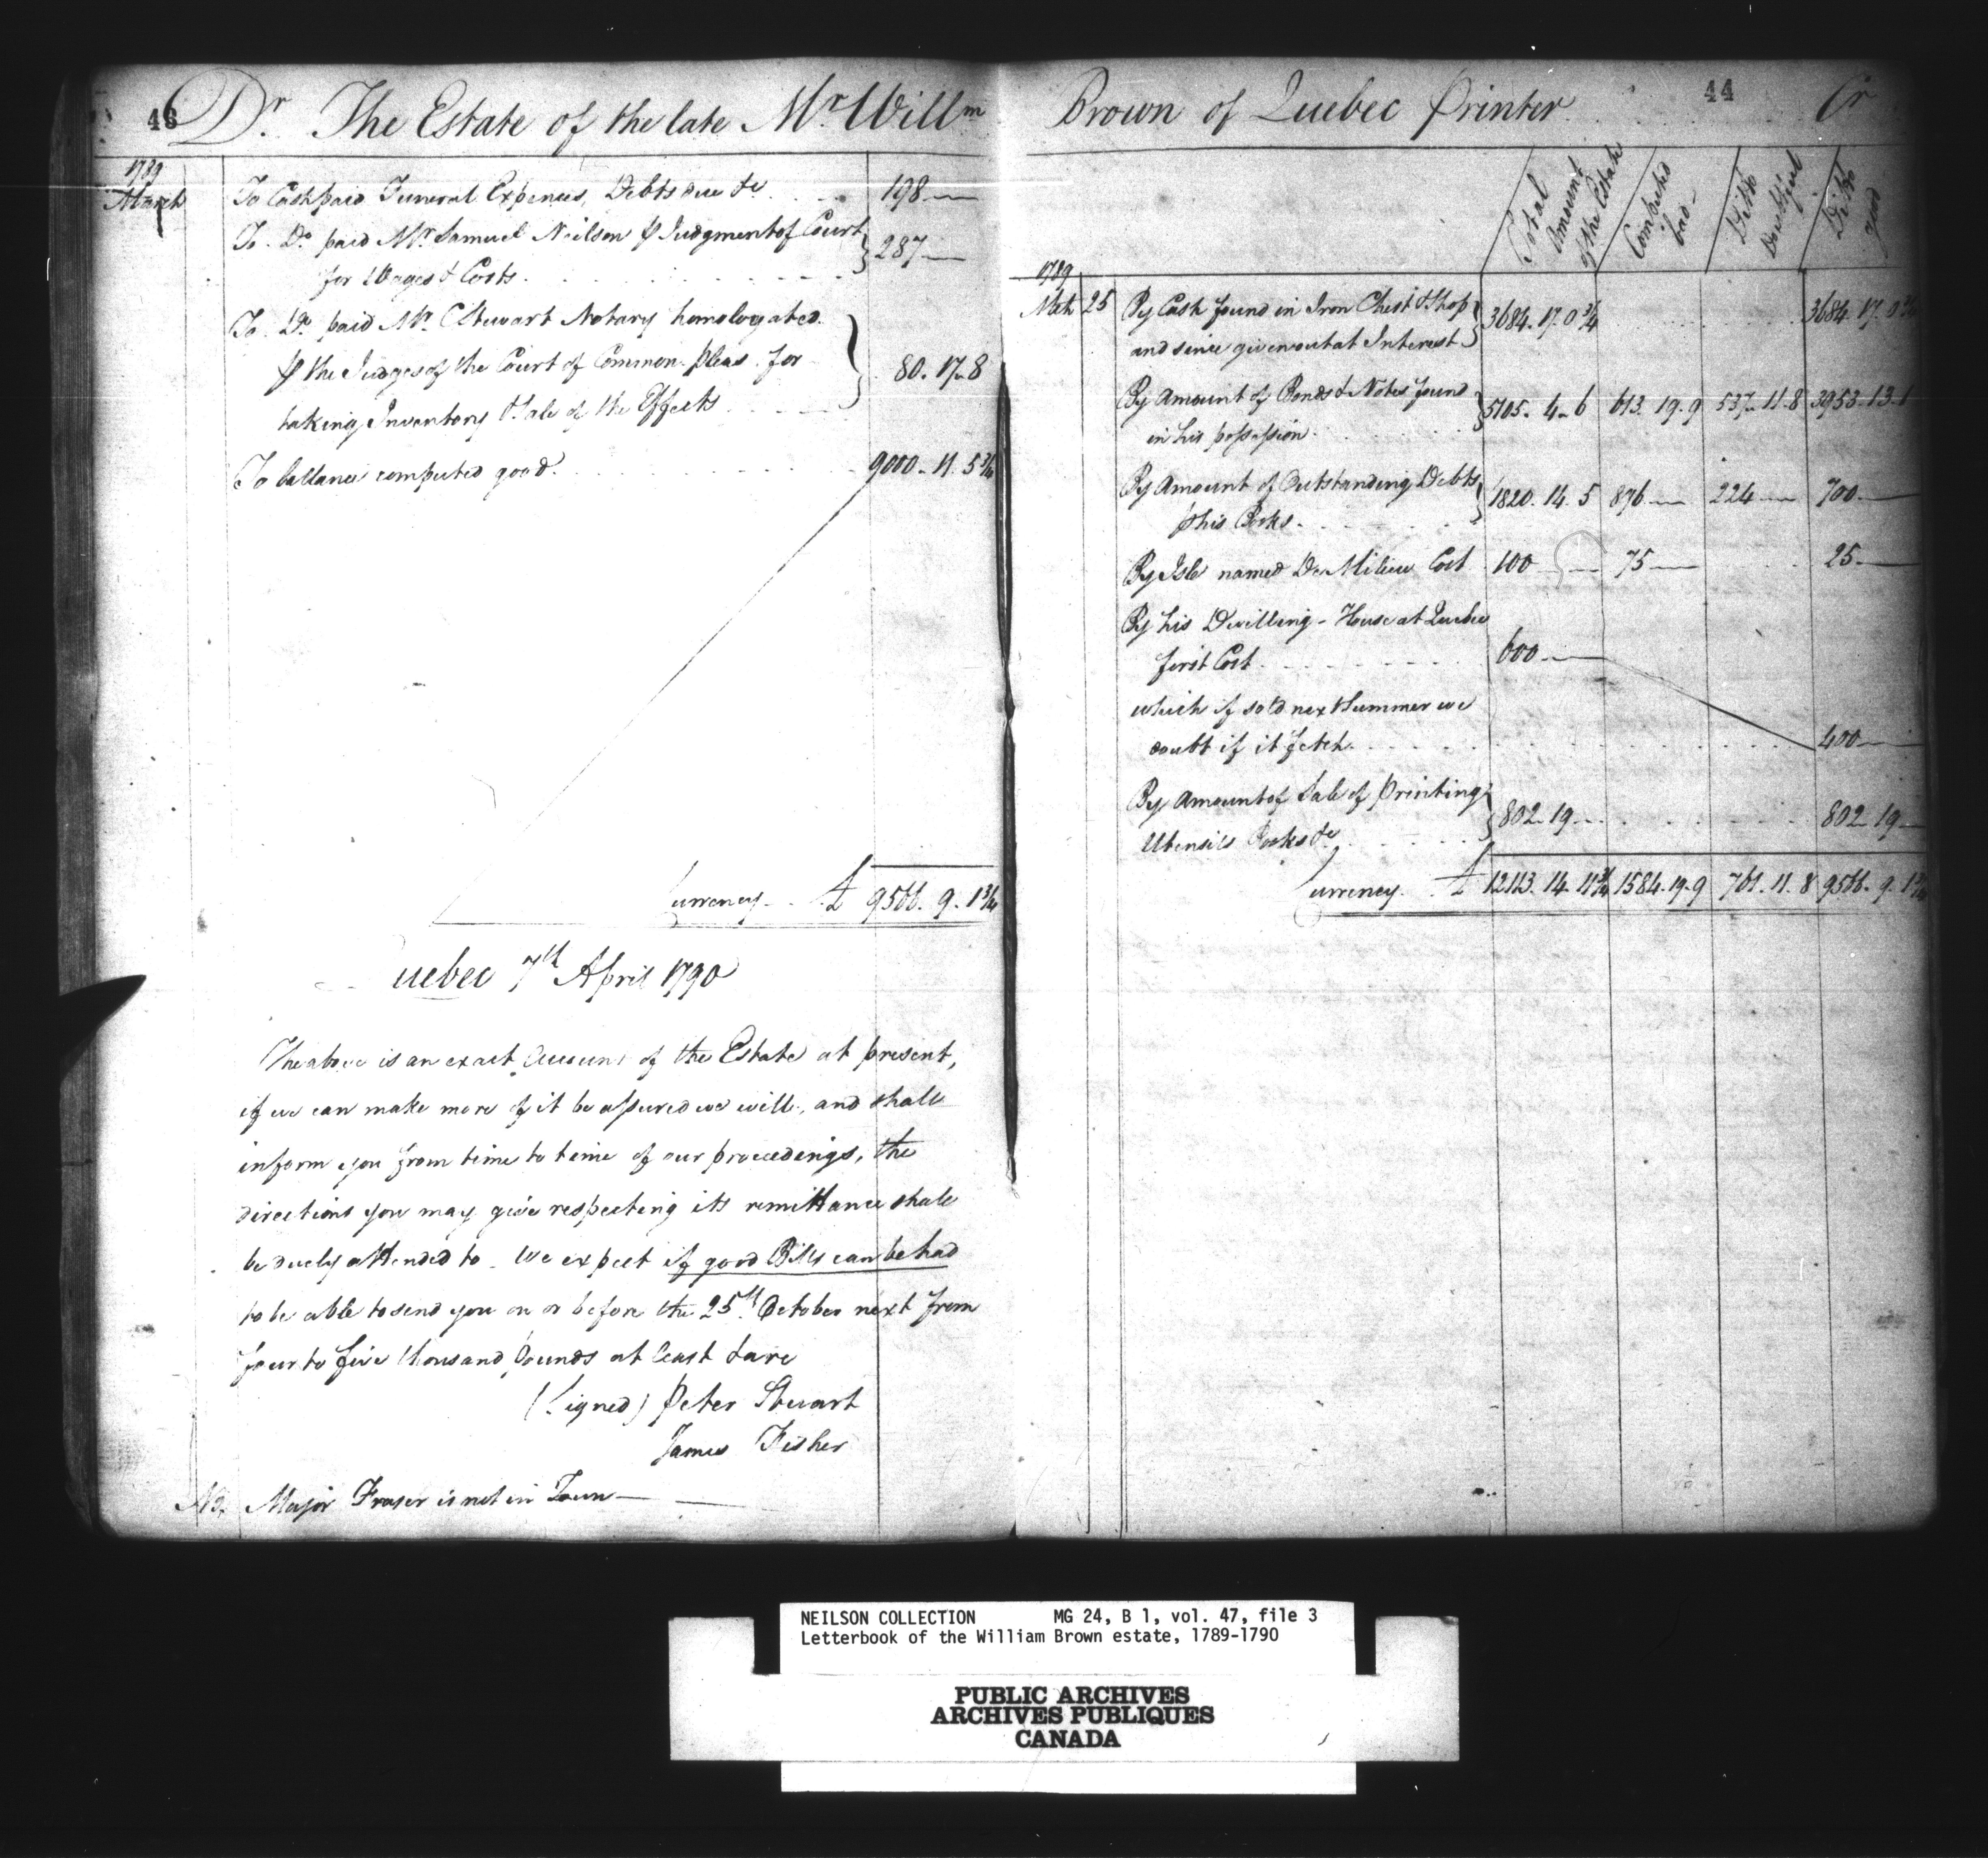 46
Dr. The Estate of the late Mr. Willm
1789
March
To Cash paid Funeral Expences, Debts due &c 198 —
To Do paid Mr Samuel Neilson ⅌ Judgment of Court
for Wages & Costs 287 —
To Do paid Mr. C Stewart Notary homologated
⅌ the Judges of the Court of Common pleas for
taking Inventory & Sale of the Effects 80. 17. 8
To ballance computed good 9000. 11. 5¾
Currency £ 9566. 9. 1¾
Quebec 7th April 1790
The above is an exact Account of the Estate at present,
if we can make more of it be assured we will, and shall
inform you from time to time of our proceedings, the
directions you may give respecting its remittance shall
be duely attended to. We expect if good Bills can be had
to be able to send you on or before the 25th October next from
four to five thousand pounds at least & are
(Signed) Peter Stewart
James Fisher
NB. Major Fraser is not in Town —
Brown of Quebec Printer 44 Cr
Total Amount of the Estate
Computed bad
Ditto Doubtful
Ditto good
1789
Mch 25 By Cash found in Iron Chest & Shop
and since given out at Interest 3684. 17. 0¾ 3684. 17. 0¾
By Amount of Bonds & Notes found
in his possession 5105. 4. 6 613. 19. 9 537. 11. 8 3953. 13. 1
By Amount of Outstanding Debts
⅌ his Books 1820. 14. 5 896 — 224 — 700 —
By Isle named Du Milieu Cost 100 — 75 — 25 —
By his Dwelling-House at Quebec
first Cost 600 —
which if sold next Summer we
doubt if it fetch 400 —
By Amount of Sale of Printing
Utensils Books &c 802. 19 — 802. 19 —
Currency £ 12113. 14. 11¾ 1584. 19. 9 761. 11. 8 9566. 9. 1¾
NEILSON COLLECTION MG 24, B 1, vol. 47, file 3
Letterbook of the William Brown estate, 1789-1790
PUBLIC ARCHIVES
ARCHIVES PUBLIQUES
CANADA